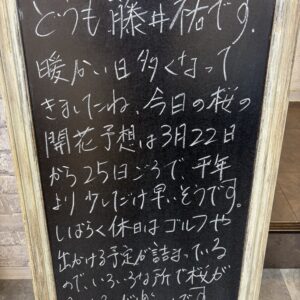 どうも藤井祐です。
暖かい日多くなって
きましたね、今日の桜の
開花予想は3月22日
から25日ごろで、平年
より少しだけ早いそうです。
しばらく休日はゴルフや
出かける予定が詰まっている
ので、いろいろな所で桜が